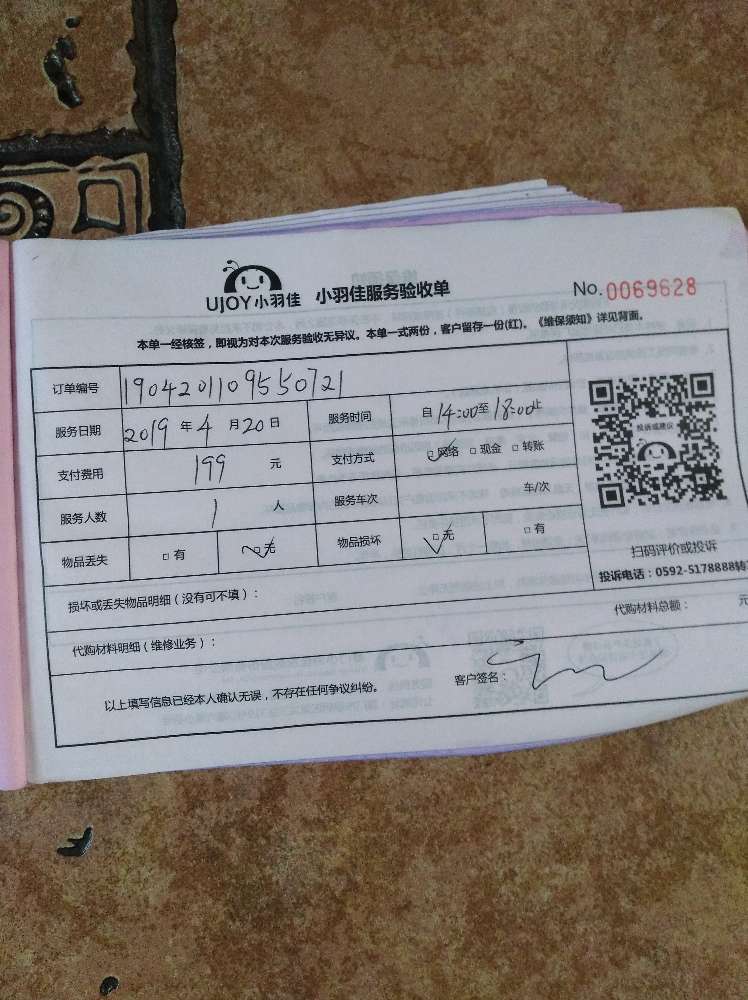 UJOY小羽佳 小羽佳服务验收单 No.0069628
本单一经核签，即视为对本次服务验收无异议。本单一式两份，客户留存一份(红)。《维保须知》详见背面。
订单编号 1904201109550721
服务日期 2019 年 4 月 20 日 服务时间 自 14:00 至 18:00 止
支付费用 199 元 支付方式 □网络 □现金 □转账
服务人数 1 人 服务车次 车/次
物品丢失 □有 □无 物品损坏 □无 □有
投诉或建议
扫码评价或投诉
投诉电话：0592-5178888转
损坏或丢失物品明细（没有可不填）：
代购材料明细（维修业务）： 代购材料总额： 元
以上填写信息已经本人确认无误，不存在任何争议纠纷。 客户签名：